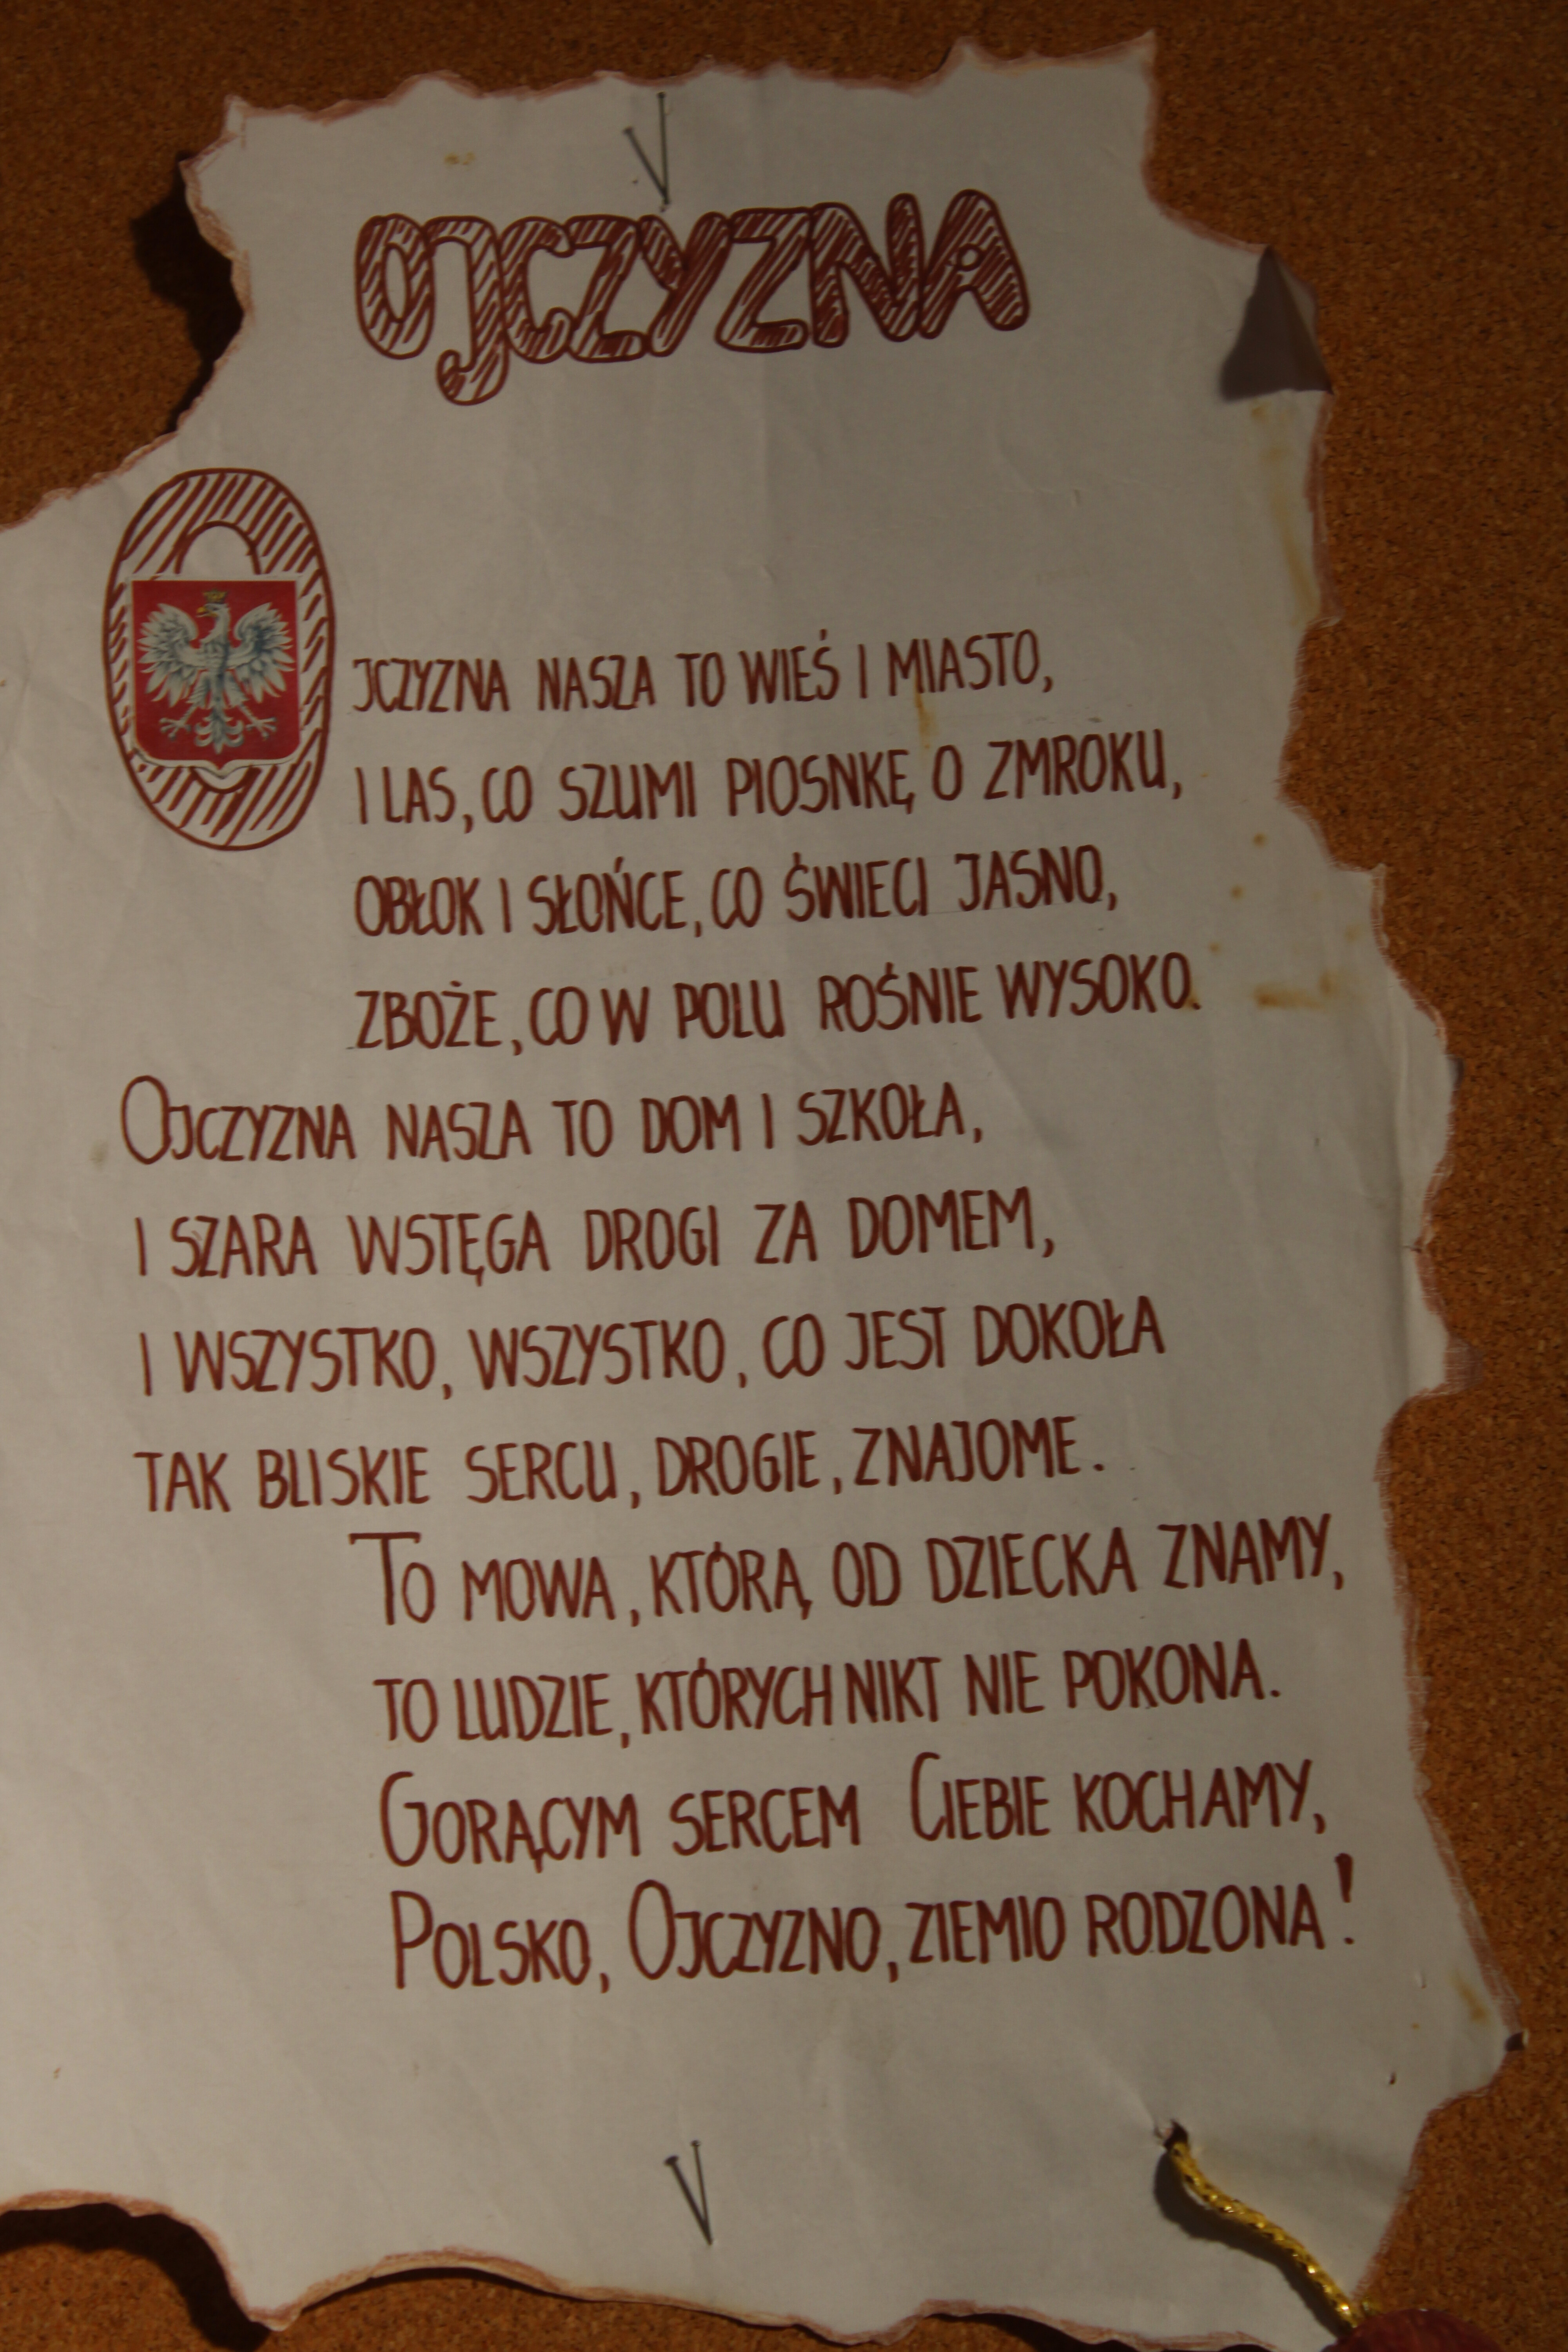 OJCZYZNA
OJCZYZNA NASZA TO WIEŚ I MIASTO,
I LAS, CO SZUMI PIOSNKĘ O ZMROKU,
OBŁOK I SŁOŃCE, CO ŚWIECI JASNO,
ZBOŻE, CO W POLU ROŚNIE WYSOKO.
OJCZYZNA NASZA TO DOM I SZKOŁA,
I SZARA WSTĘGA DROGI ZA DOMEM,
I WSZYSTKO, WSZYSTKO, CO JEST DOKOŁA
TAK BLISKIE SERCU, DROGIE, ZNAJOME.
TO MOWA, KTÓRĄ OD DZIECKA ZNAMY,
TO LUDZIE, KTÓRYCH NIKT NIE POKONA.
GORĄCYM SERCEM CIEBIE KOCHAMY,
POLSKO, OJCZYZNO, ZIEMIO RODZONA!